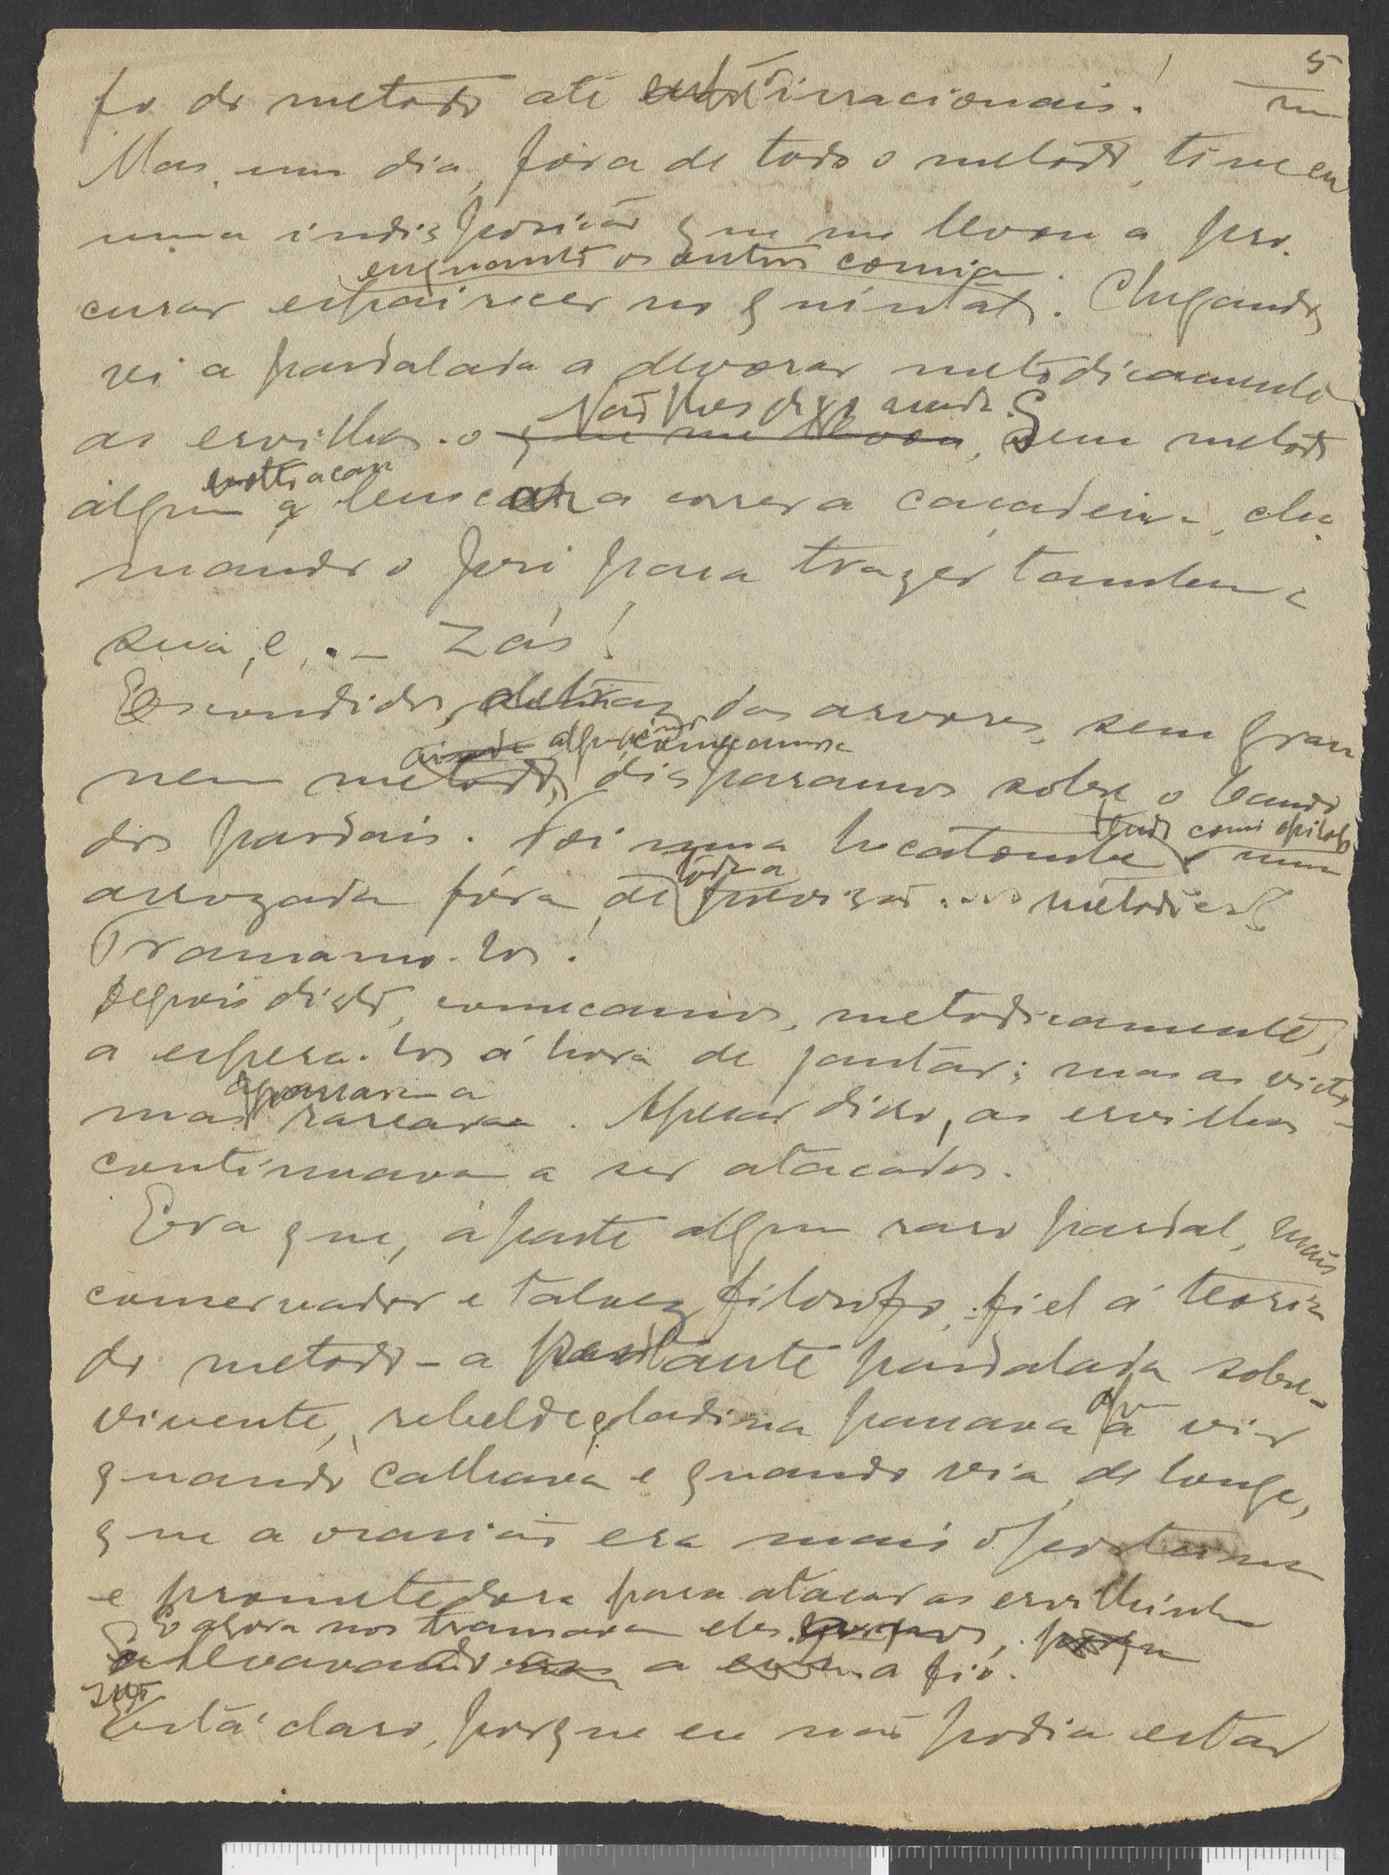 5
fo do metodo até irracionais!
Mas, um dia, fóra de todo o metodo, tive eu
uma indisposição que me levou a pro-
enquanto os outros comiam.
curar espairecer no quintal. Chegando,
vi a pardalada a devorar metodicamente
Não lhes disse nada. S
as ervilhas. o que me levou, Sem metodo
algum a correr a caçadeira, cha-
mando o para trazer tambem a
sua, e... Zás!
Escondidos, detraz das arvores, sem grau
ainda algum
nem metodo, disparamos sobre o bando
dos pardais. Foi uma hecatombe e uma
toda a
arrozada fóra de previsão.... metodica
Tramamo-los!
Depois disto, começamos, metodicamente,
a espera-los á hora de jantar; mas as victi-
mas rareavam. Apesar disso, as ervilhas
continuavam a ser atacadas.
Era que, áparte algum raro pardal, mais
conservador e talvez filosofo, fiel á teoria
do metodo - a restante pardalada sobre-
vivente, rebelde e ladina passava a vir
quando calhava e quando via, de longe,
que a ocasião era mais oportuna
e prometedora para atacar as ervilhinhas
E agora nos tramavam eles
a levava a a fio.
Está claro, porque eu não podia estar